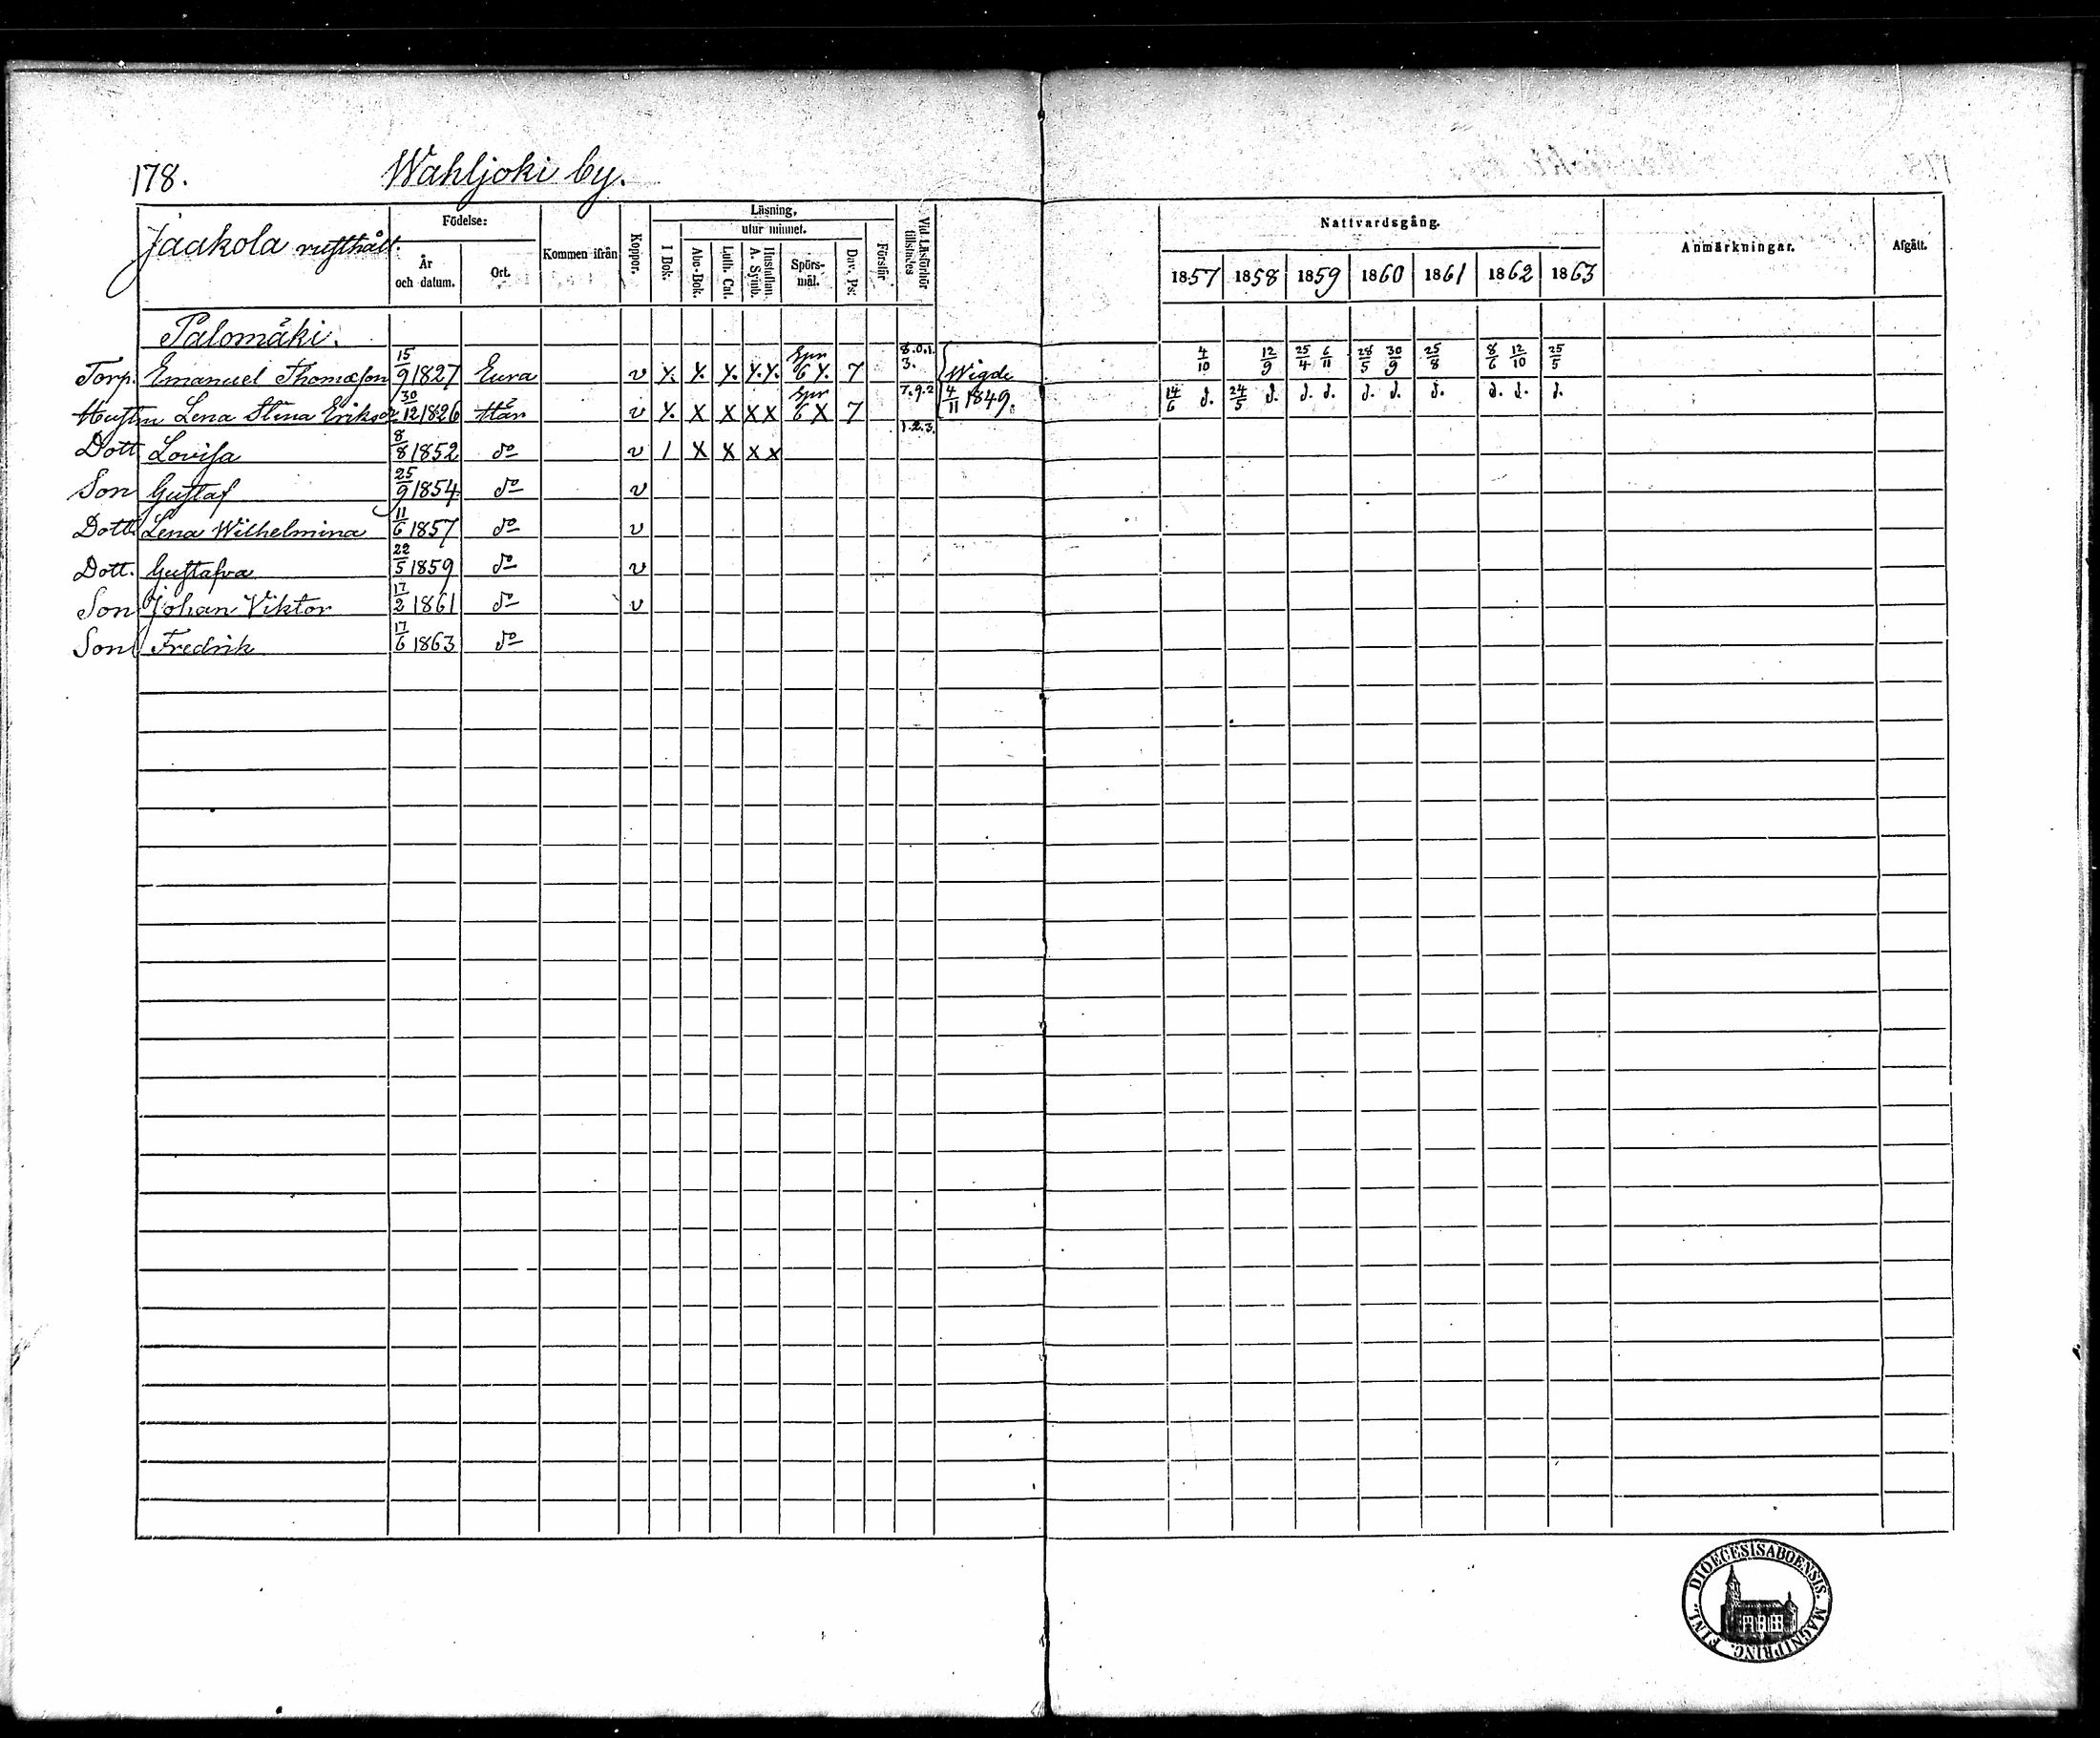 178. Wahljoki by.
Jaakola rusthåll.
Födelse:
År och datum.
Ort.
Kommen ifrån
Koppor.
Läsning,
utur minnet.
I Bok.
Abc-Bok.
Luth. Cat.
Hustaflan. A. Symb.
Spörs-mål.
Dav. Ps:
Försför
Vid Läsförhör tillstädes
Nattvardsgång.
1857 1858 1859 1860 1861 1862 1863
Anmärkningar.
Afgått.
Palomäki.
Torp. Emanuel Thomasson 15/9 1827 Eura v X. X. X. X. X. Spr 6 X. 7 8.0.1.3. Wigde 4/10 12/9 25/4 6/11 28/5 30/9 25/8 8/6 12/10 25/5
Hustru Lena Stina Eriksdr 30/12 1826 Här v X. X X X X Spr 6 X 7 7.9.2 4/11 1849. 14/6 d. 24/5 d. d. d. d. d. d. d. d. d.
Dott Lovisa 8/8 1852 do v 1 X X X X 1.2.3.
Son Gustaf 25/9 1854 do v
Dott. Lena Wilhelmina 11/6 1857 do v
Dott. Gustafva 22/5 1859 do v
Son Johan Viktor 17/2 1861 do v
Son Fredrik 17/6 1863 do
DIOECESIS ABOENSIS. MAGNI PRINC. FINL.